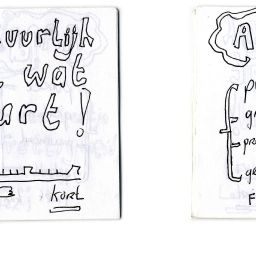 uurlijk
wat
urt!
3
kort
A
p
g
pro
ge
F